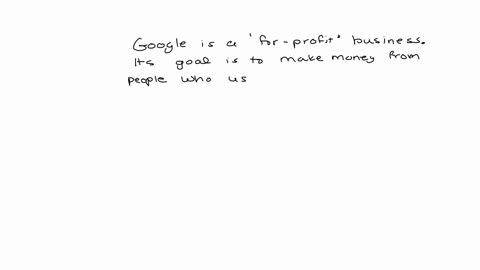 Google is a 'for-profit' business.
Its goal is to make money from
people who us